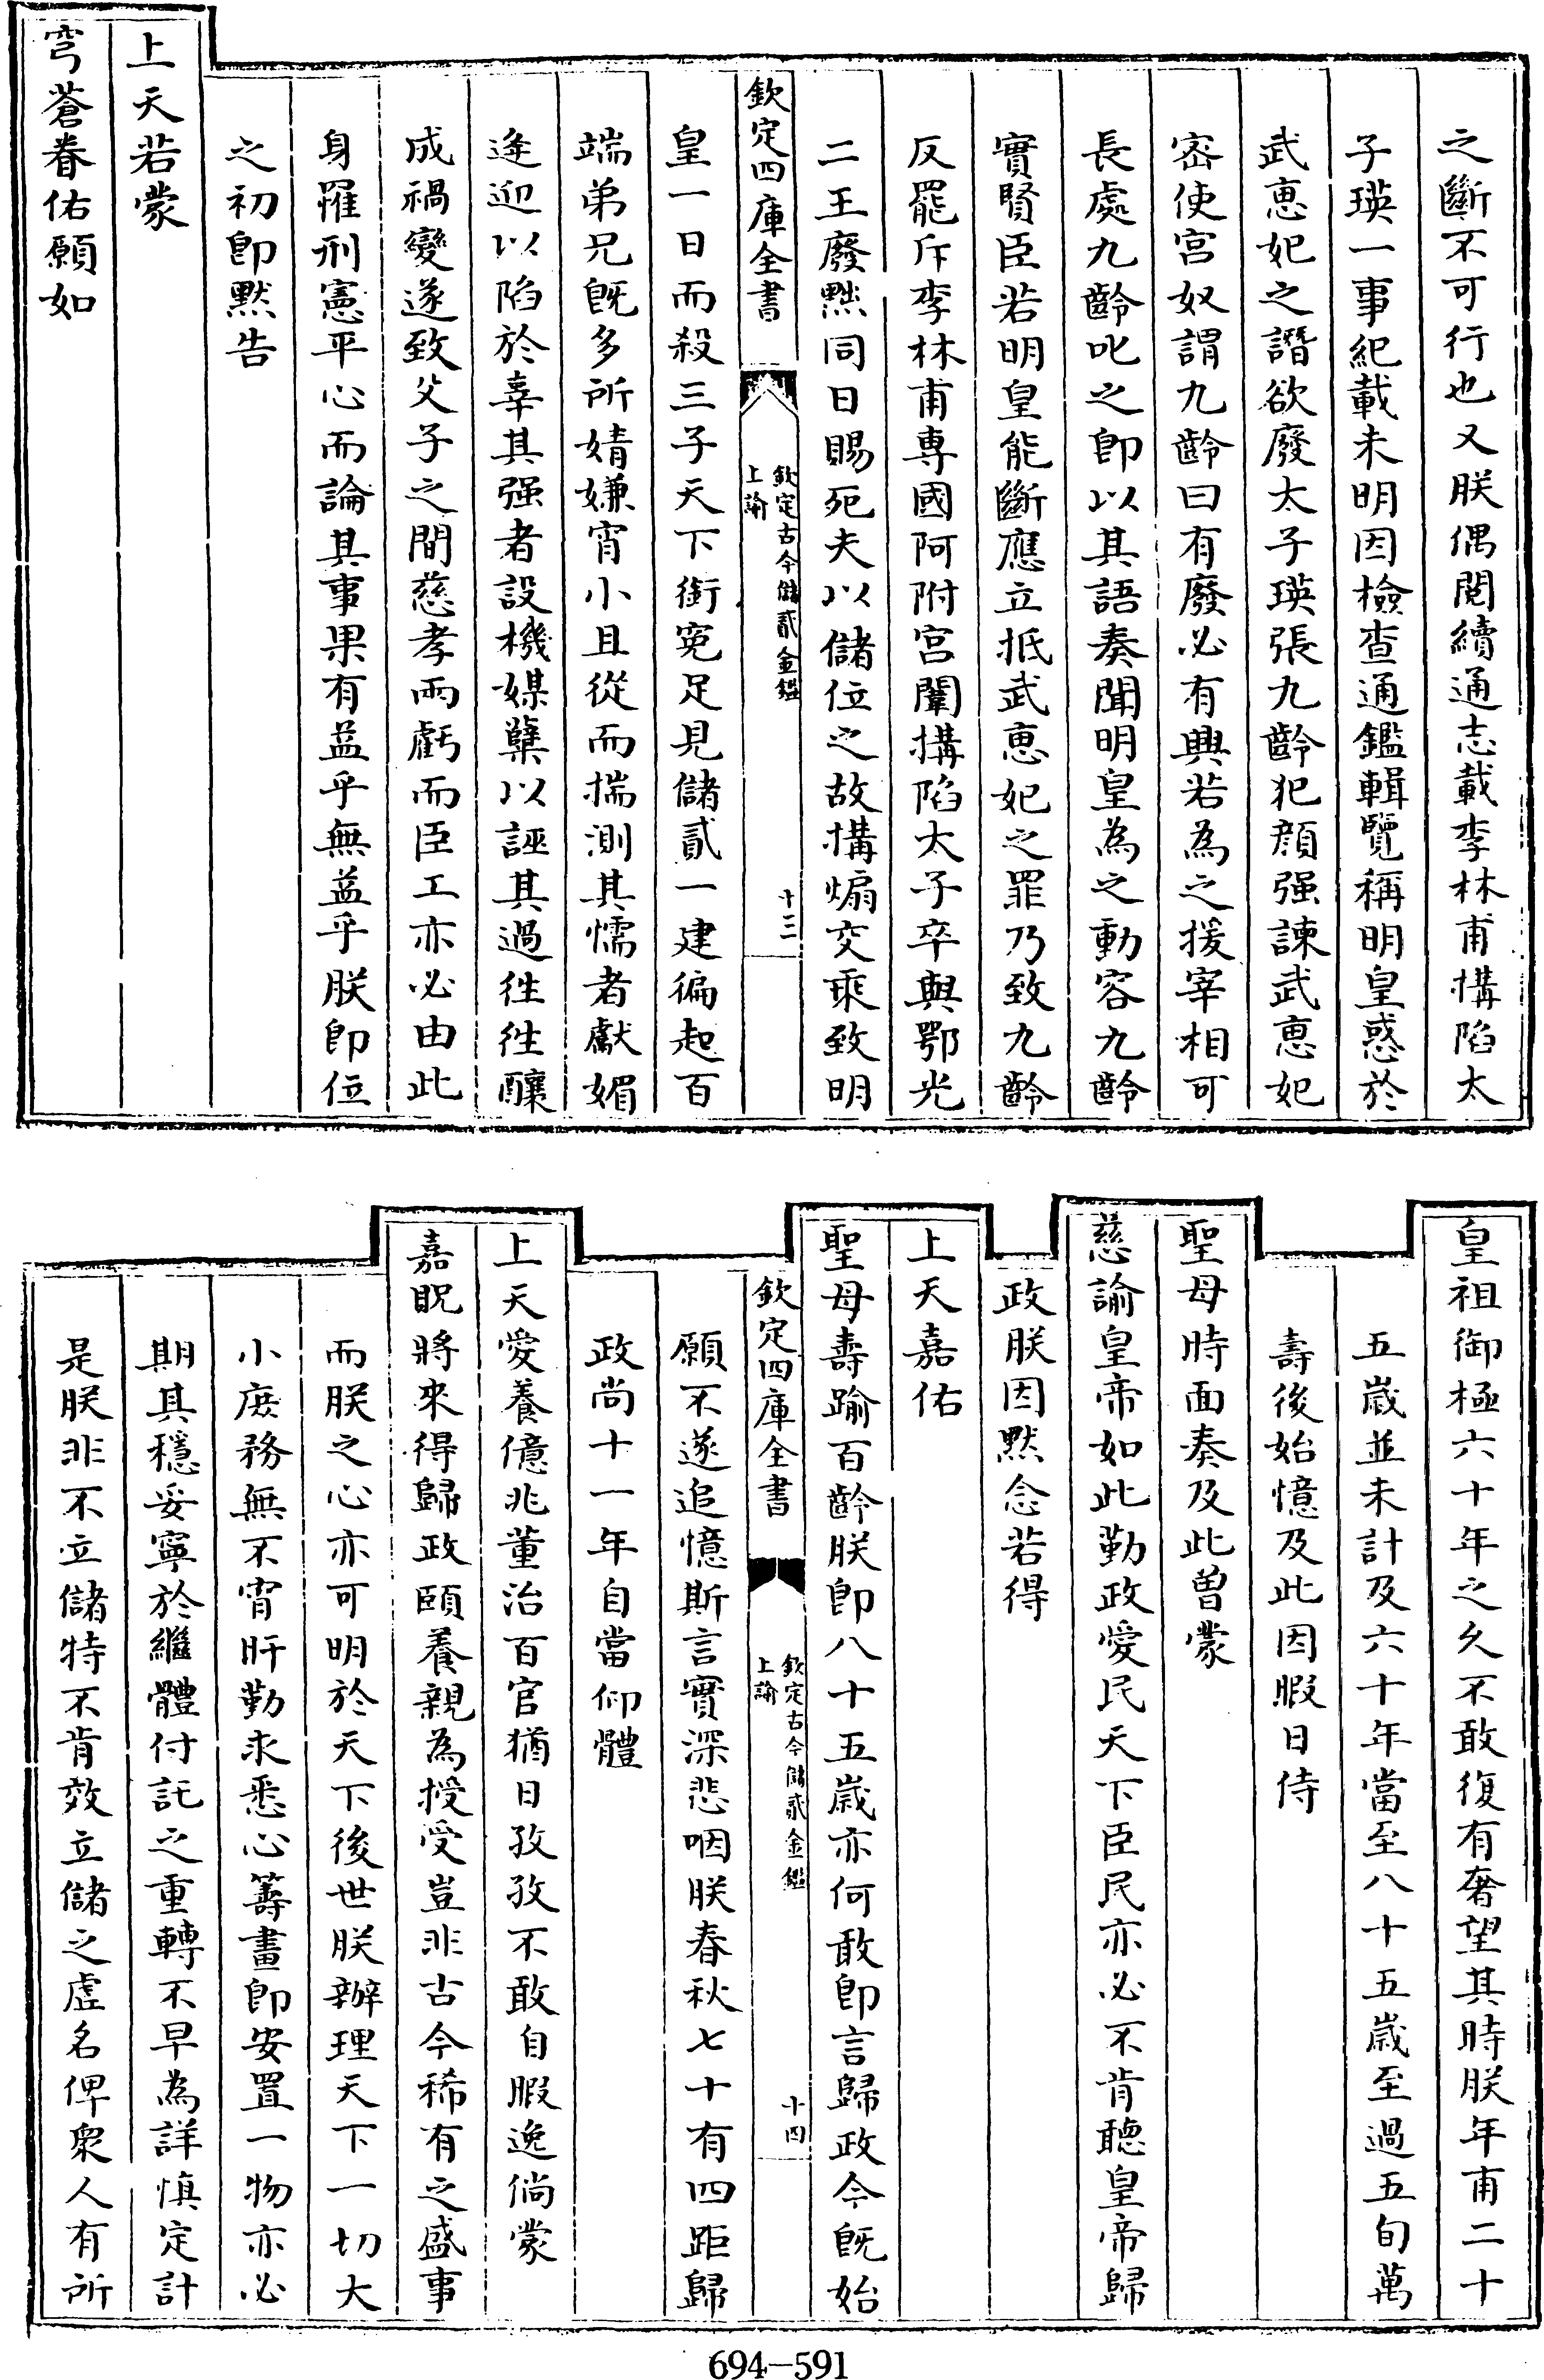 之斷不可行也又朕偶閱續通志載李林甫搆陷太
子瑛一事紀載未明因檢查通鑑輯覽稱明皇惑於
武惠妃之譖欲廢太子瑛張九齡犯顔强諫武惠妃
宻使宫奴謂九齡曰有廢必有興若為之援宰相可
長處九齡叱之即以其語奏聞明皇為之動容九齡
實賢臣若明皇能斷應立抵武惠妃之罪乃致九齡
反罷斥李林甫專國阿附宫闈搆陷太子卒與鄂光
二王廢黜同日賜死夫以儲位之故搆煽交乘致明
欽定四庫全書
欽定古今儲貳金鑑
上諭
十三
皇一日而殺三子天下銜寃足見儲貳一建徧起百
端弟兄既多所猜嫌宵小且從而揣測其懦者獻媚
逢迎以陷於辜其强者設機媒櫱以誣其過徃徃釀
成禍變遂致父子之間慈孝兩虧而臣工亦必由此
身罹刑憲平心而論其事果有益乎無益乎朕即位
之初即默告
上天若蒙
穹蒼眷佑願如
皇祖御極六十年之久不敢復有奢望其時朕年甫二十
五歲並未計及六十年當至八十五歲至過五旬萬
壽後始憶及此因暇日侍
聖母時面奏及此曾蒙
慈諭皇帝如此勤政愛民天下臣民亦必不肯聽皇帝歸
政朕因默念若得
上天嘉佑
聖母壽踰百齡朕即八十五歲亦何敢即言歸政今既始
欽定四庫全書
欽定古今儲貳金鑑
上諭
十四
願不遂追憶斯言實深悲咽朕春秋七十有四距歸
政尚十一年自當仰體
上天愛養億兆董治百官猶日孜孜不敢自暇逸倘蒙
嘉貺將來得歸政頤養親為授受豈非古今稀有之盛事
而朕之心亦可明於天下後世朕辦理天下一切大
小庶務無不宵旰勤求悉心籌畫即安置一物亦必
期其穩妥寧於繼體付託之重轉不早為詳慎定計
是朕非不立儲特不肯效立儲之虚名俾衆人有所
694-591